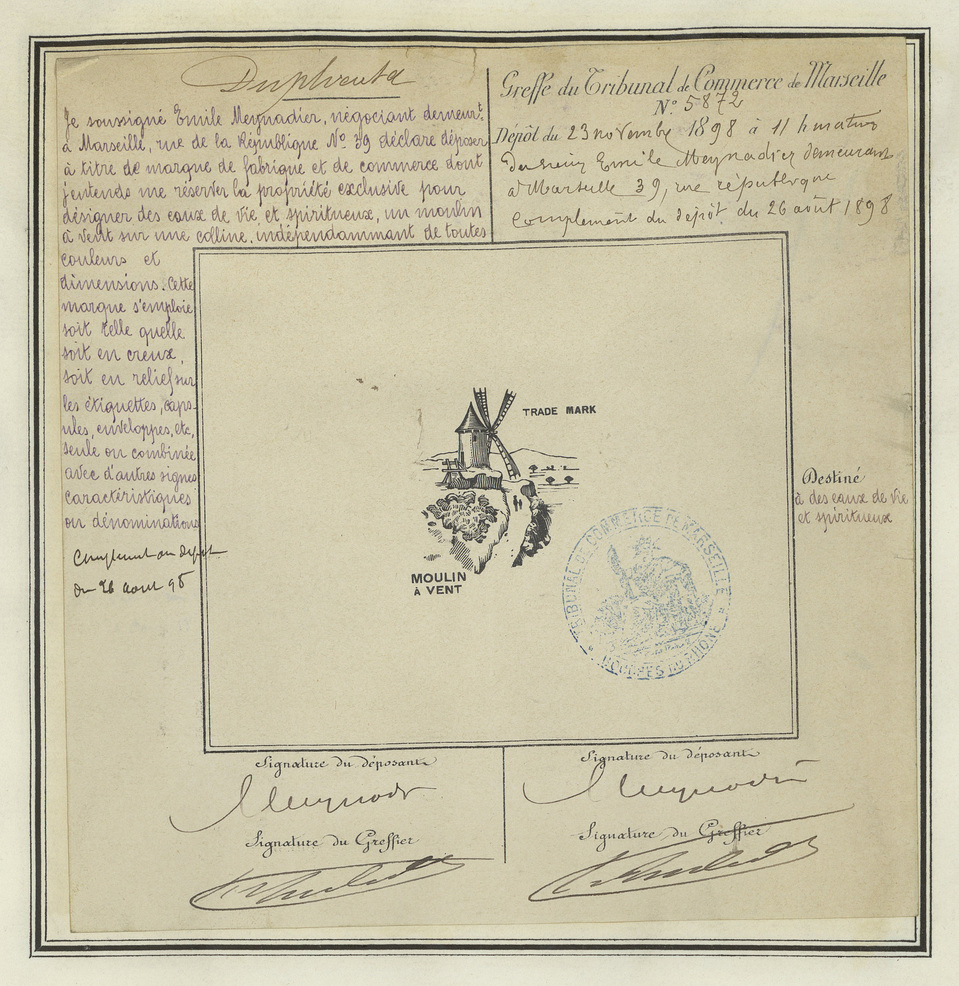 Duplicata
Je soussigné Emile Meynadier, négociant demeurt
à Marseille, rue de la République No 39 déclare déposer
à titre de marque de fabrique et de commerce dont
j'entends me réserver la propriété exclusive pour
désigner des eaux de vie et spiritueux, un moulin
à vent sur une colline, indépendamment de toutes
couleurs et
dimensions. Cette
marque s'emploie
soit telle quelle
soit en creux,
soit en relief sur
les étiquettes, caps-
ules, enveloppes, etc,
seule ou combinée
avec d'autres signes
caractéristiques
ou dénominations
Complément au dépôt
du 26 aout 98
Greffe du Tribunal de Commerce de Marseille
No 5872
Dépôt du 23 novembre 1898 à 11 h matin
Du sieur Emile Meynadier demeurant
à Marseille 39, rue république
Complement du dépôt du 26 août 1898
TRADE MARK
MOULIN
À VENT
TRIBUNAL DE COMMERCE DE MARSEILLE
BOUCHES DU RHÔNE
Destiné
à des eaux de vie
et spiritueux
Signature du déposant
Meynadier
Signature du Greffier
Signature du déposant
Meynadier
Signature du Greffier